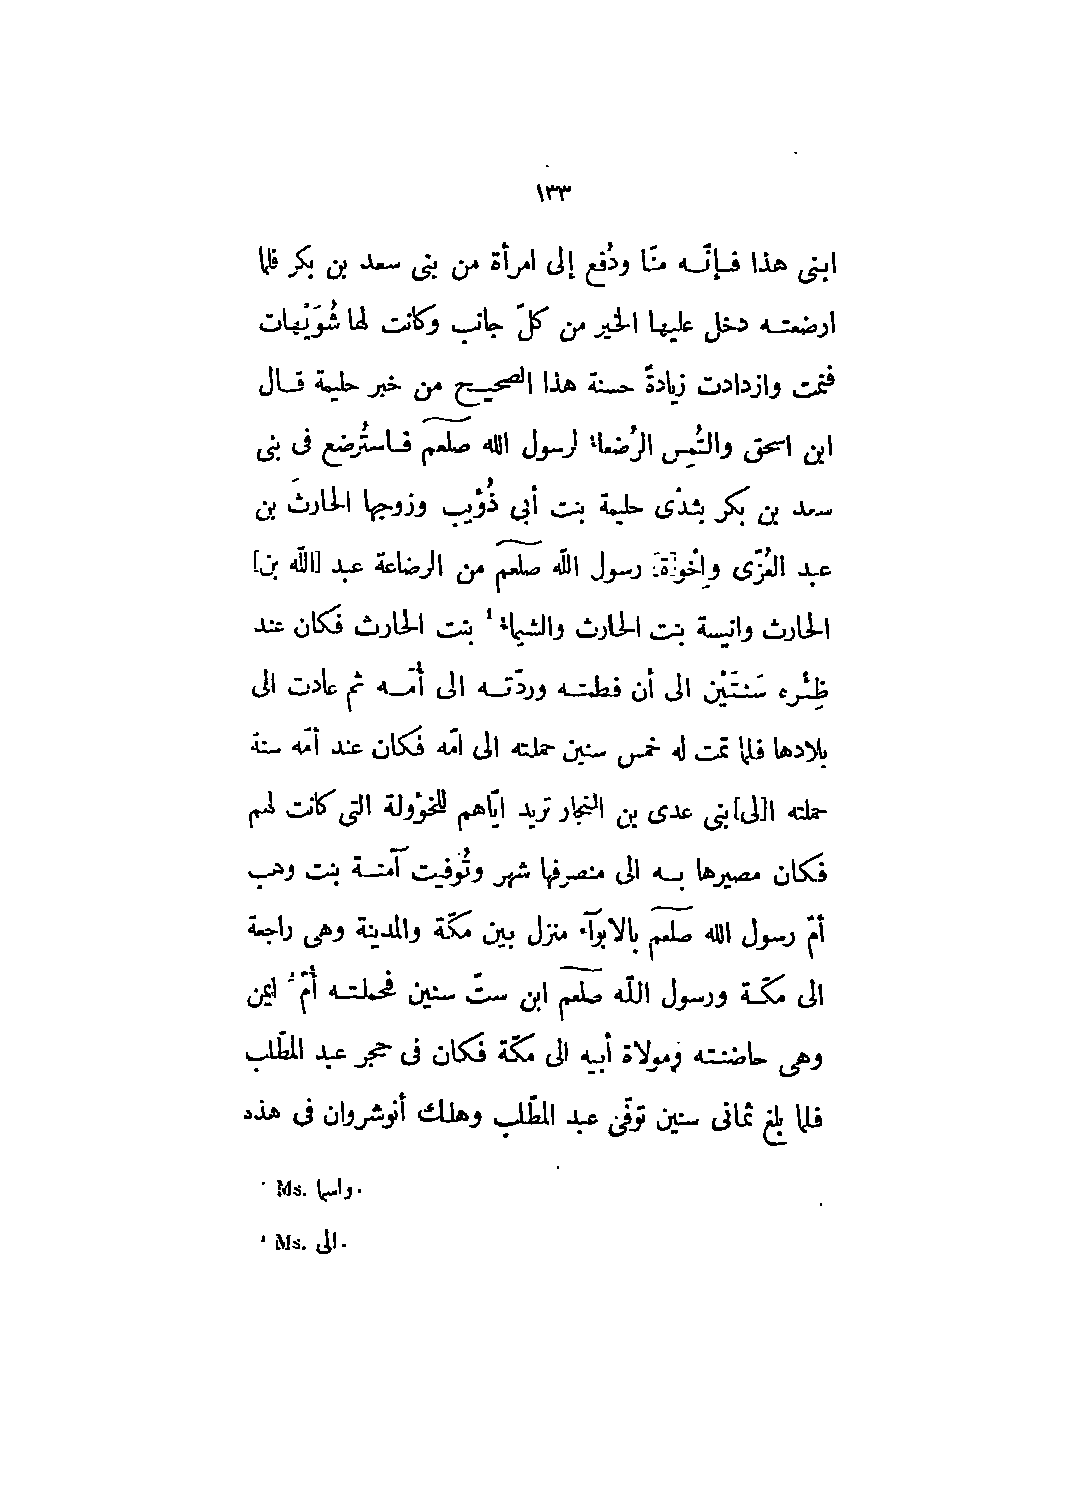 ١٣٣
ابنى هذا فإنّه منّا ودُفع إلى امرأة من بنى سعد بن بكر فلما
ارضعته دخل عليها الخير من كلّ جانب وكانت لها شُوَيْهات
فنمت وازدادت زيادةً حسنة هذا الصحيح من خبر حليمة قال
ابن اسحق والتُمِس الرُضعاء لرسول الله صلعم فاستُرضع فى بنى
سعد بن بكر بثدْى حليمة بنت أبى ذُؤَيب وزوجها الحارثَ بن
عبد العُزّى وإخْو[ة] رسول اللّه صلعم من الرضاعة عبد [اللّه بن]
الحارث وانيسة بنت الحارث والشيماء ¹ بنت الحارث فكان عند
ظِئْره سَنتَيْن الى أن فطمته وردّته الى أُمّه ثم عادت الى
بلادها فلما تمت له خمس سنين حملته الى امّه فكان عند أمّه سنة
حملته ا[لى] بنى عدى بن النجار تريد ايّاهم للخؤولة التى كانت لهم
فكان مصيرها به الى منصرفها شهر وتُوفيت آمنة بنت وهب
أمّ رسول الله صلعم بالابوآء منزل بين مكّة والمدينة وهى راجعة
الى مكّة ورسول اللّه صلعم ابن ستّ سنين فحملته أُمّ ² ايمن
وهى حاضنته ومولاة أبيه الى مكّة فكان فى حجر عبد المطّلب
فلما بلغ ثمانى سنين توفّى عبد المطّلب وهلك أنوشروان فى هذه
¹ Ms. واسما.
² Ms. الى.